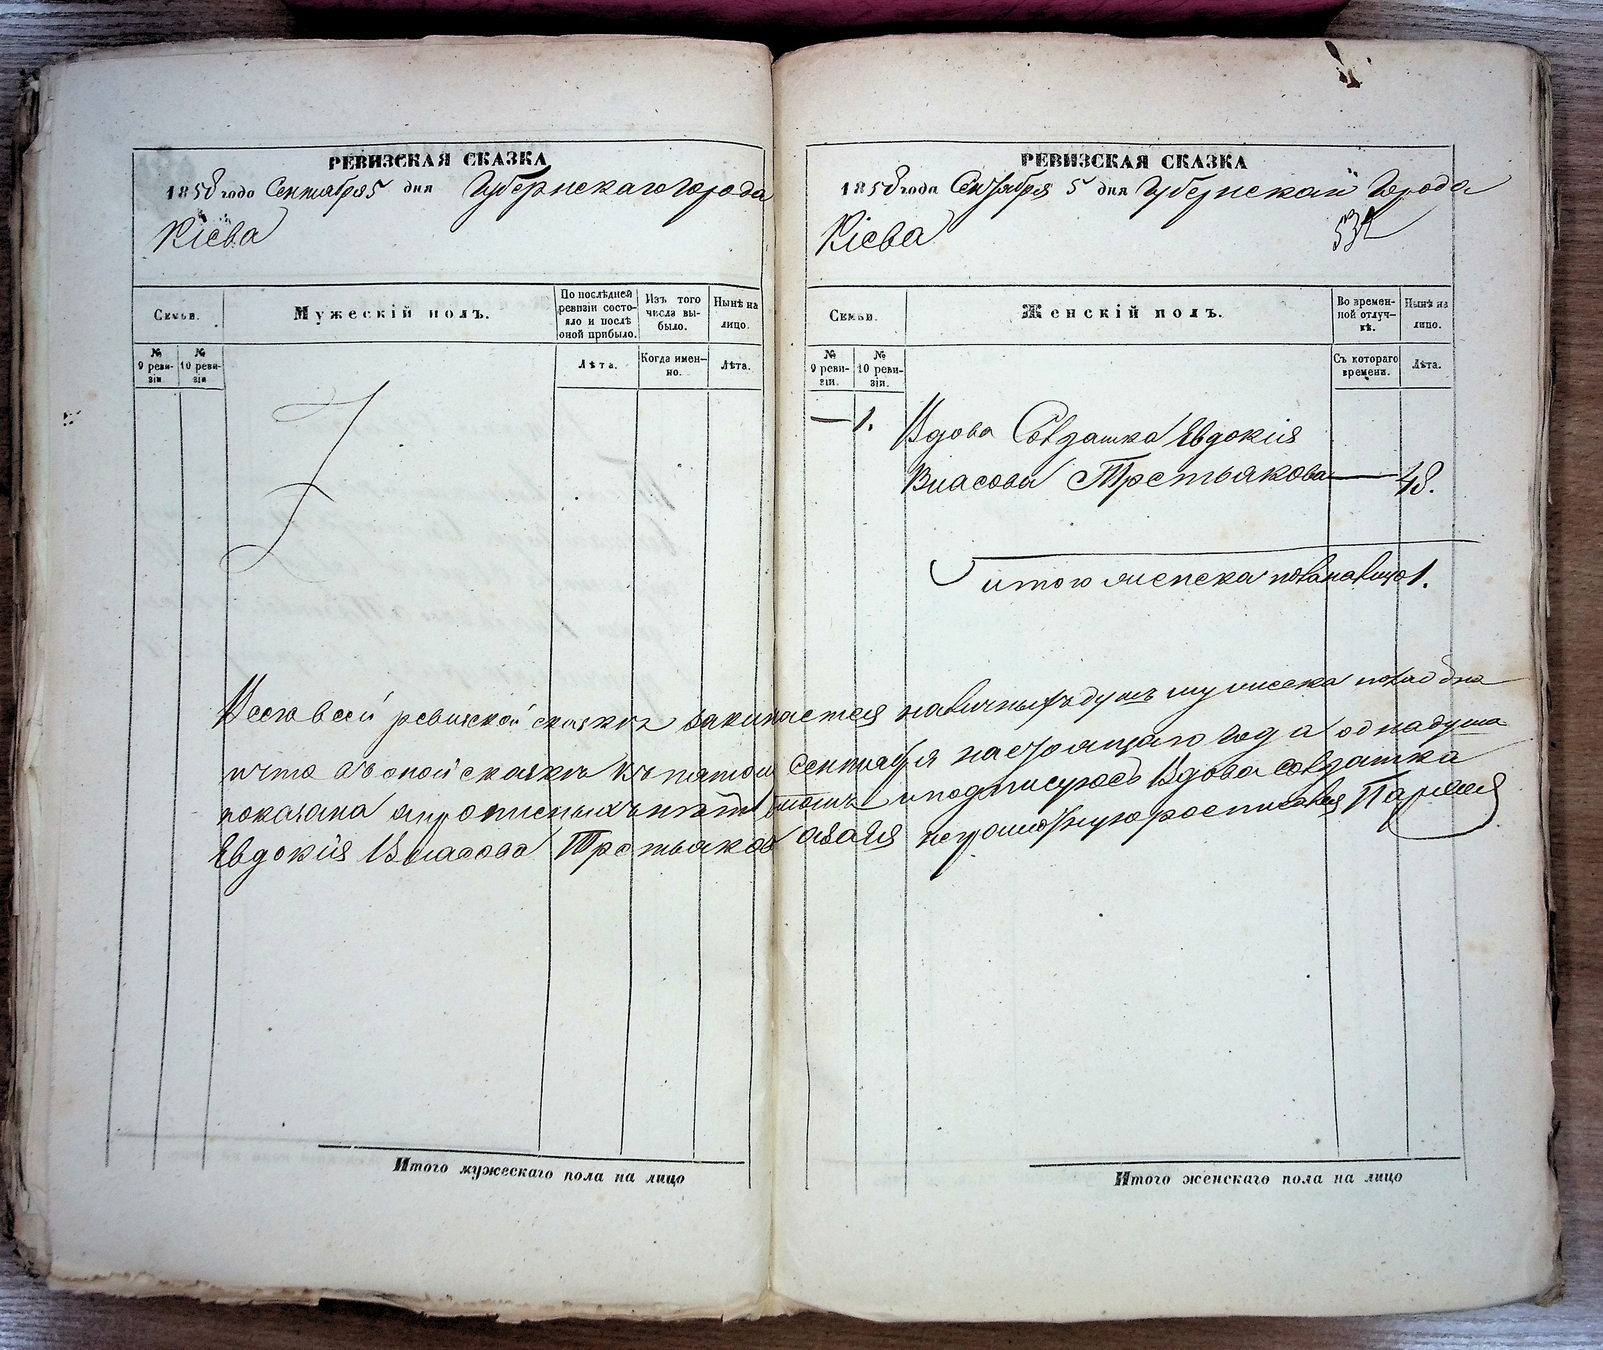 РЕВИЗСКАЯ СКАЗКА
1858 года Сентября 5 дня Губернскаго Города
Кіева
Семьи.
Мужескій полъ.
По послѣдней ревизіи состояло и послѣ оной прибыло.
Изъ того числа выбыло.
Нынѣ на лицо.
№ 9 ревизіи
№ 10 ревизіи
Лѣта.
Когда именно.
Лѣта.
Итого мужескаго пола на лицо
РЕВИЗСКАЯ СКАЗКА
1858 года Сентября 5 дня Губернскаго Города
Кіева
532
Семьи.
Женскій полъ.
Во временной отлучкѣ.
Нынѣ на лицо.
№ 9 ревизіи.
№ 10 ревизіи.
Съ котораго времени.
Лѣта.
— 1. Вдова Солдатка Евдокія
Власова Третьякова — 48.
итого женска пола на лицо 1.
Всего в сей ревизской сказки заключается наличных душъ женска пола одна
и что въ оной сказкѣ къ пятому Сентября настоящаго года одна душа
показана а прописныхъ нѣтъ в томъ и подписуюсь Вдова солдатка
Евдокія Власова Третьякова а за нея неграмотную росписался
Итого женскаго пола на лицо